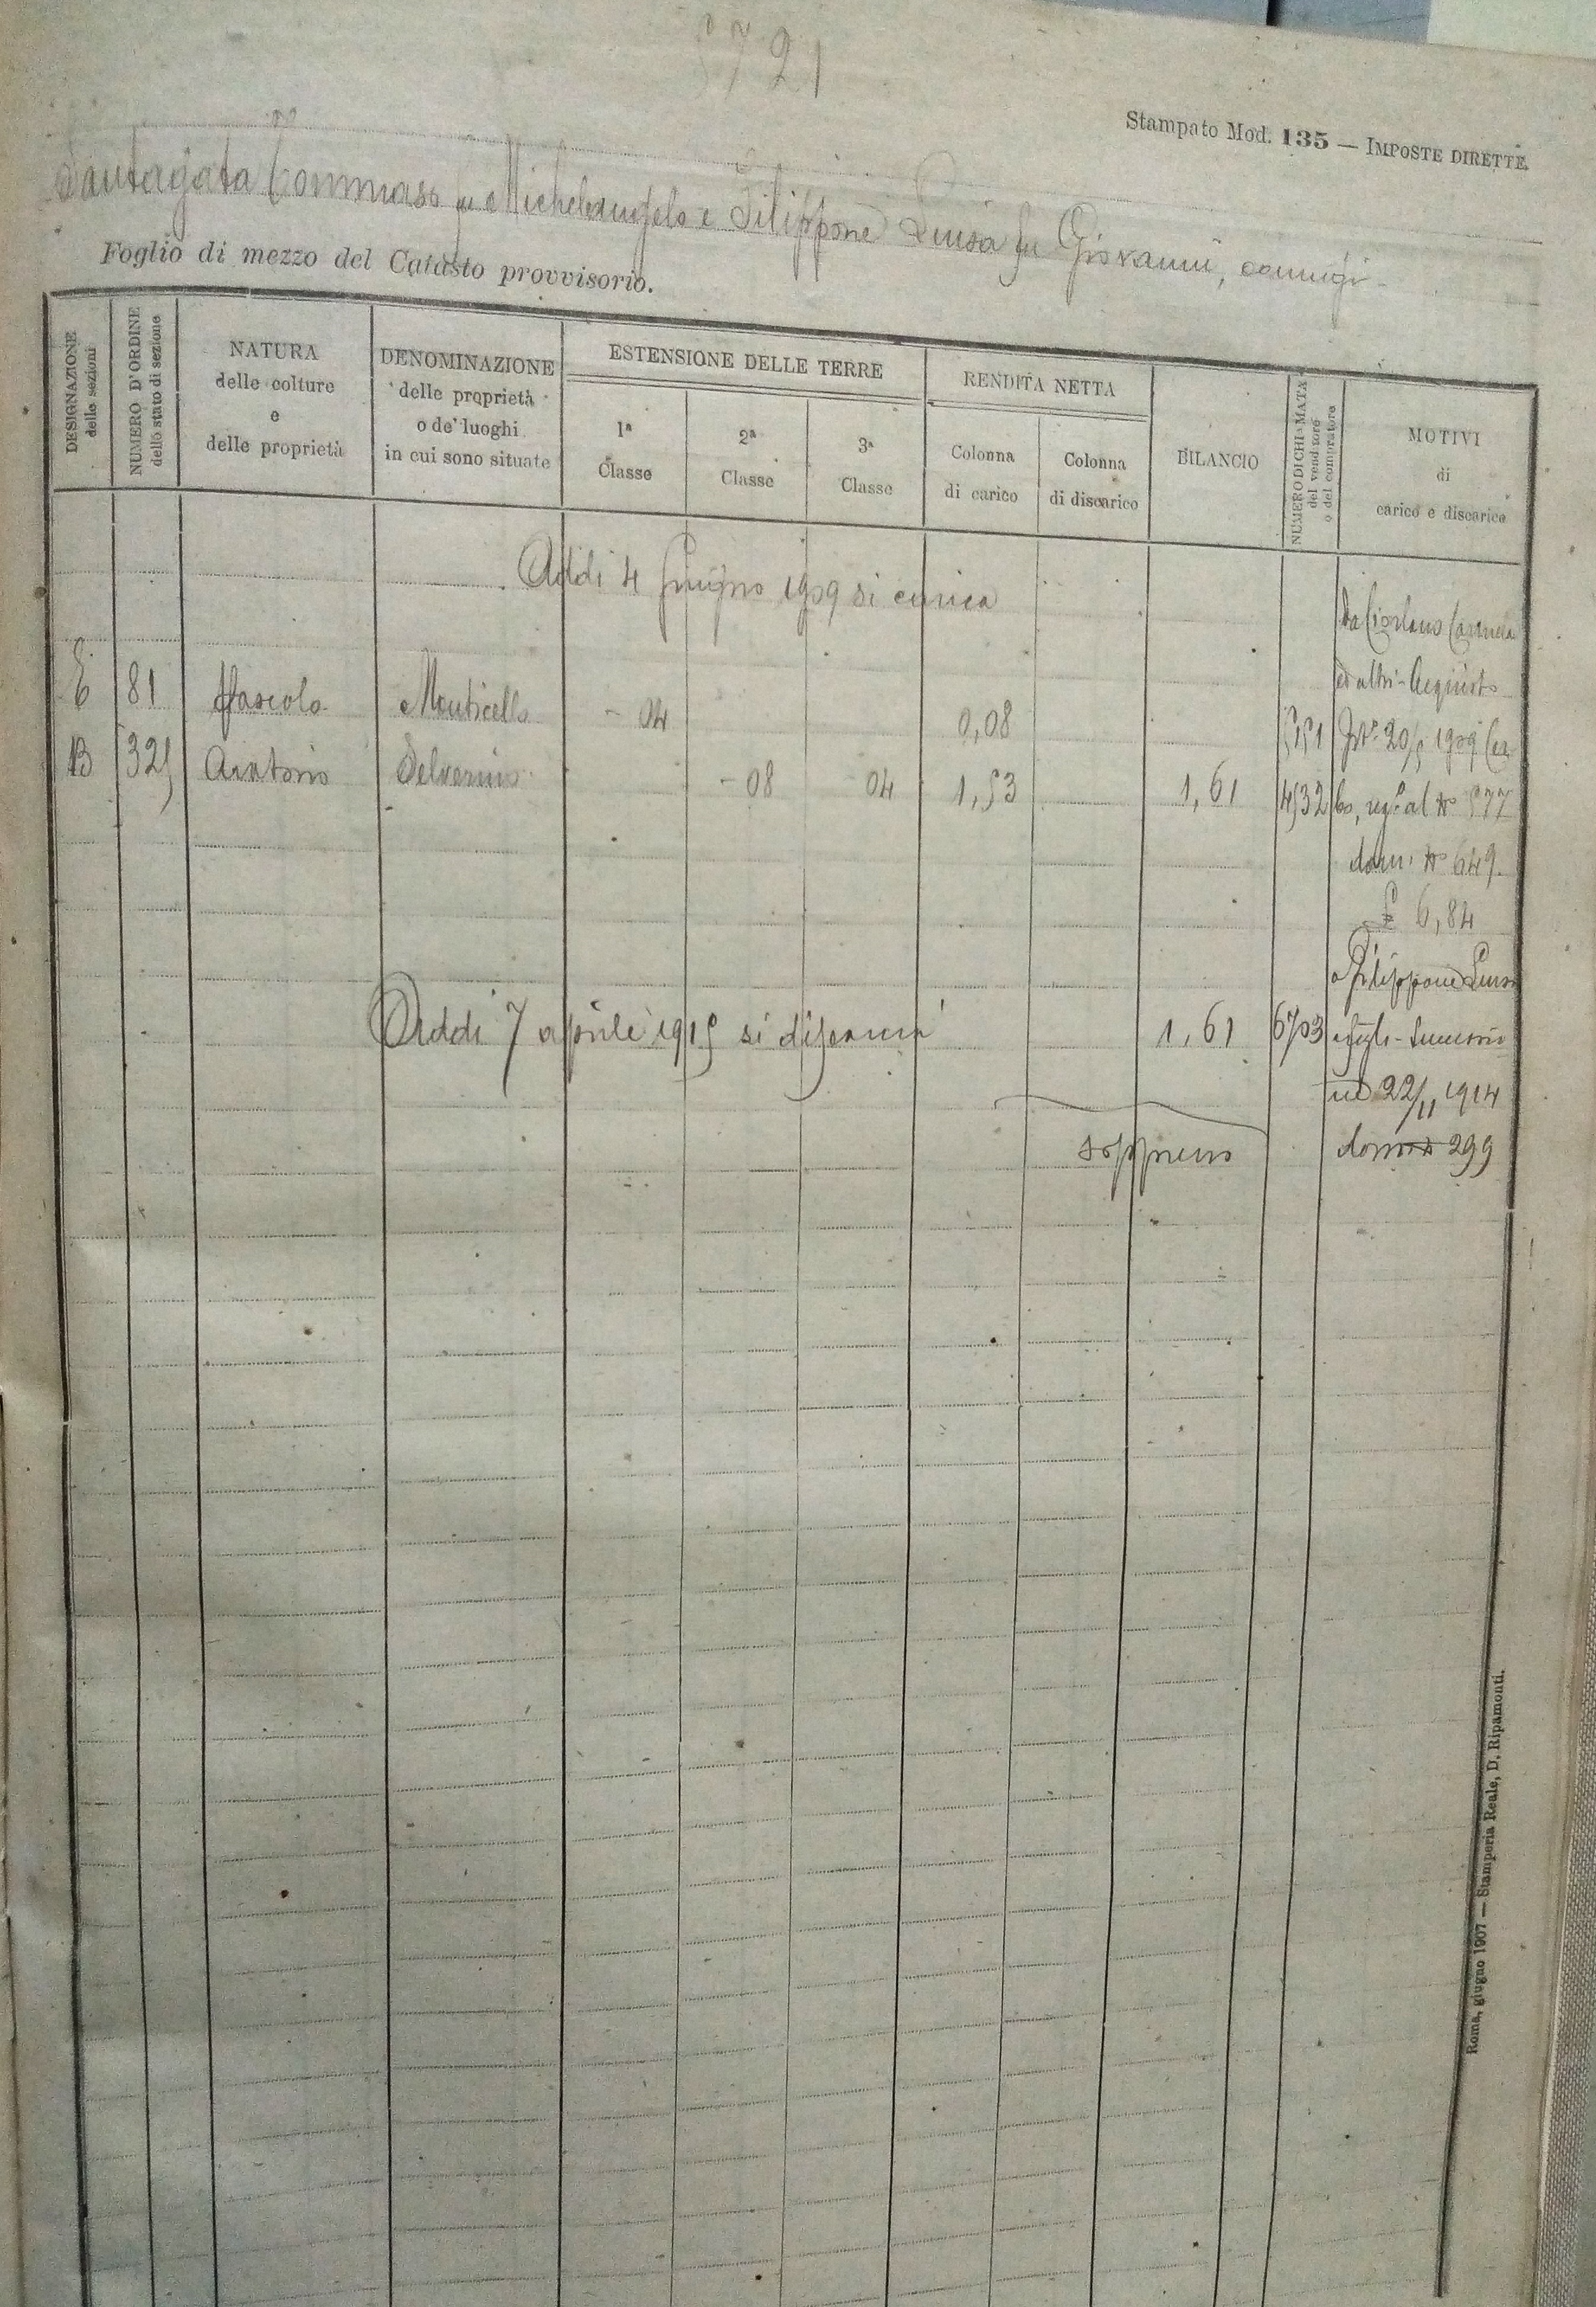 5721
Stampato Mod. 135 — IMPOSTE DIRETTE.
Santagata Tommaso fu Michelangelo e Filippone Luisa fu Giovanni, coniugi
Foglio di mezzo del Catasto provvisorio.
DESIGNAZIONE delle sezioni
NUMERO D'ORDINE dello stato di sezione
NATURA delle colture e delle proprietà
DENOMINAZIONE delle proprietà o de' luoghi in cui sono situate
ESTENSIONE DELLE TERRE
1ª Classe
2ª Classe
3ª Classe
RENDITA NETTA
Colonna di carico
Colonna di discarico
BILANCIO
NUMERO DI CHIAMATA del venditore o del compratore
MOTIVI di carico e discarico
Addi 4 Giugno 1909 si carica
Da Ciorlano Carmela
ed altri - Acquisto
E 81 Pascolo Monticello - 04 0,08 5151 20/5 1909
B 325 Aratorio Selvarino - 08 04 1,53 1,61 4532 al No 577
dom. No 649.
£ 6,84
a Filippone Luisa
Addi 7 aprile 1915 si discarica 1,61 6703 e figli - Successione
22/11 1914
soppresso dom 299
Roma, giugno 1907 — Stamperia Reale, D. Ripamonti.